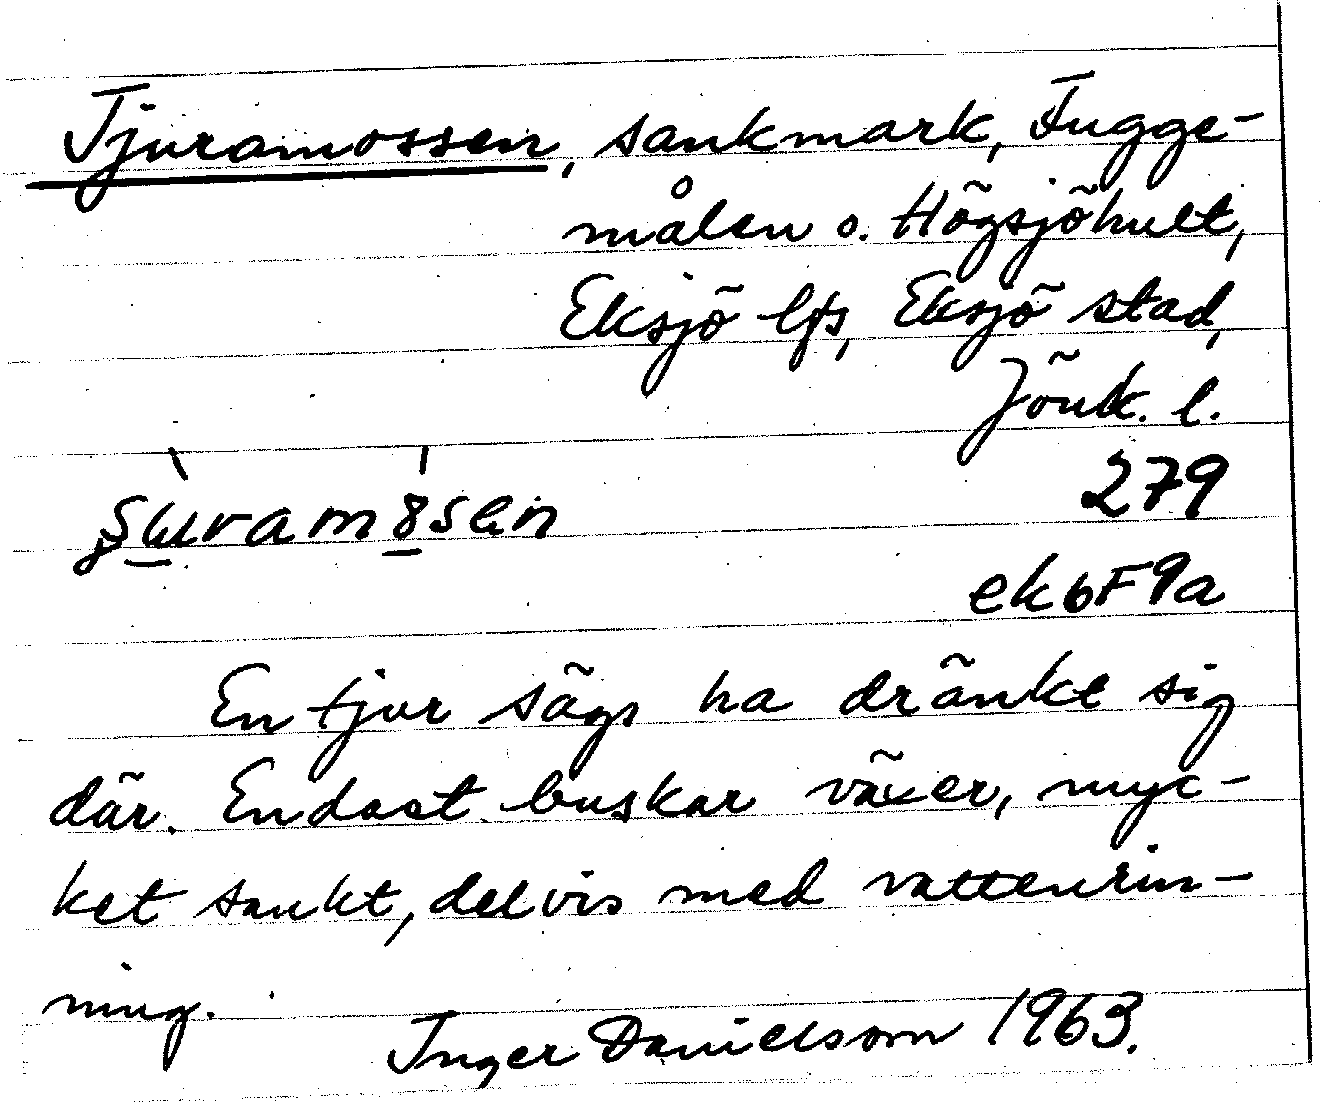 Tjuramossen, sankmark, Fugge-
målen o. Högsjöhult,
Eksjö lfs, Eksjö stad,
Jönk. l.
279
ek6F9a
En tjur sägs ha dränkt sig
där. Endast buskar växer, myc-
ket sankt, delvis med vattenrin-
ning.
Inger Danielsom 1963.